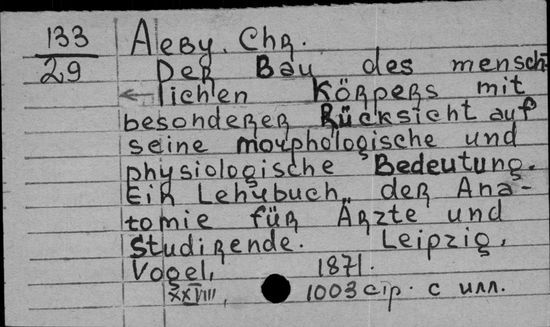 133
29
Aeby. Chr.
Der Bau des mensch-
lichen Körpers mit
besonderer Rücksicht auf
seine morphologische und
physiologische Bedeutung.
Ein Lehrbuch der Ana-
tomie für Ärzte und
Studirende. Leipzig,
Vogel, 1871.
XXVIII, 1003 стр. с илл.